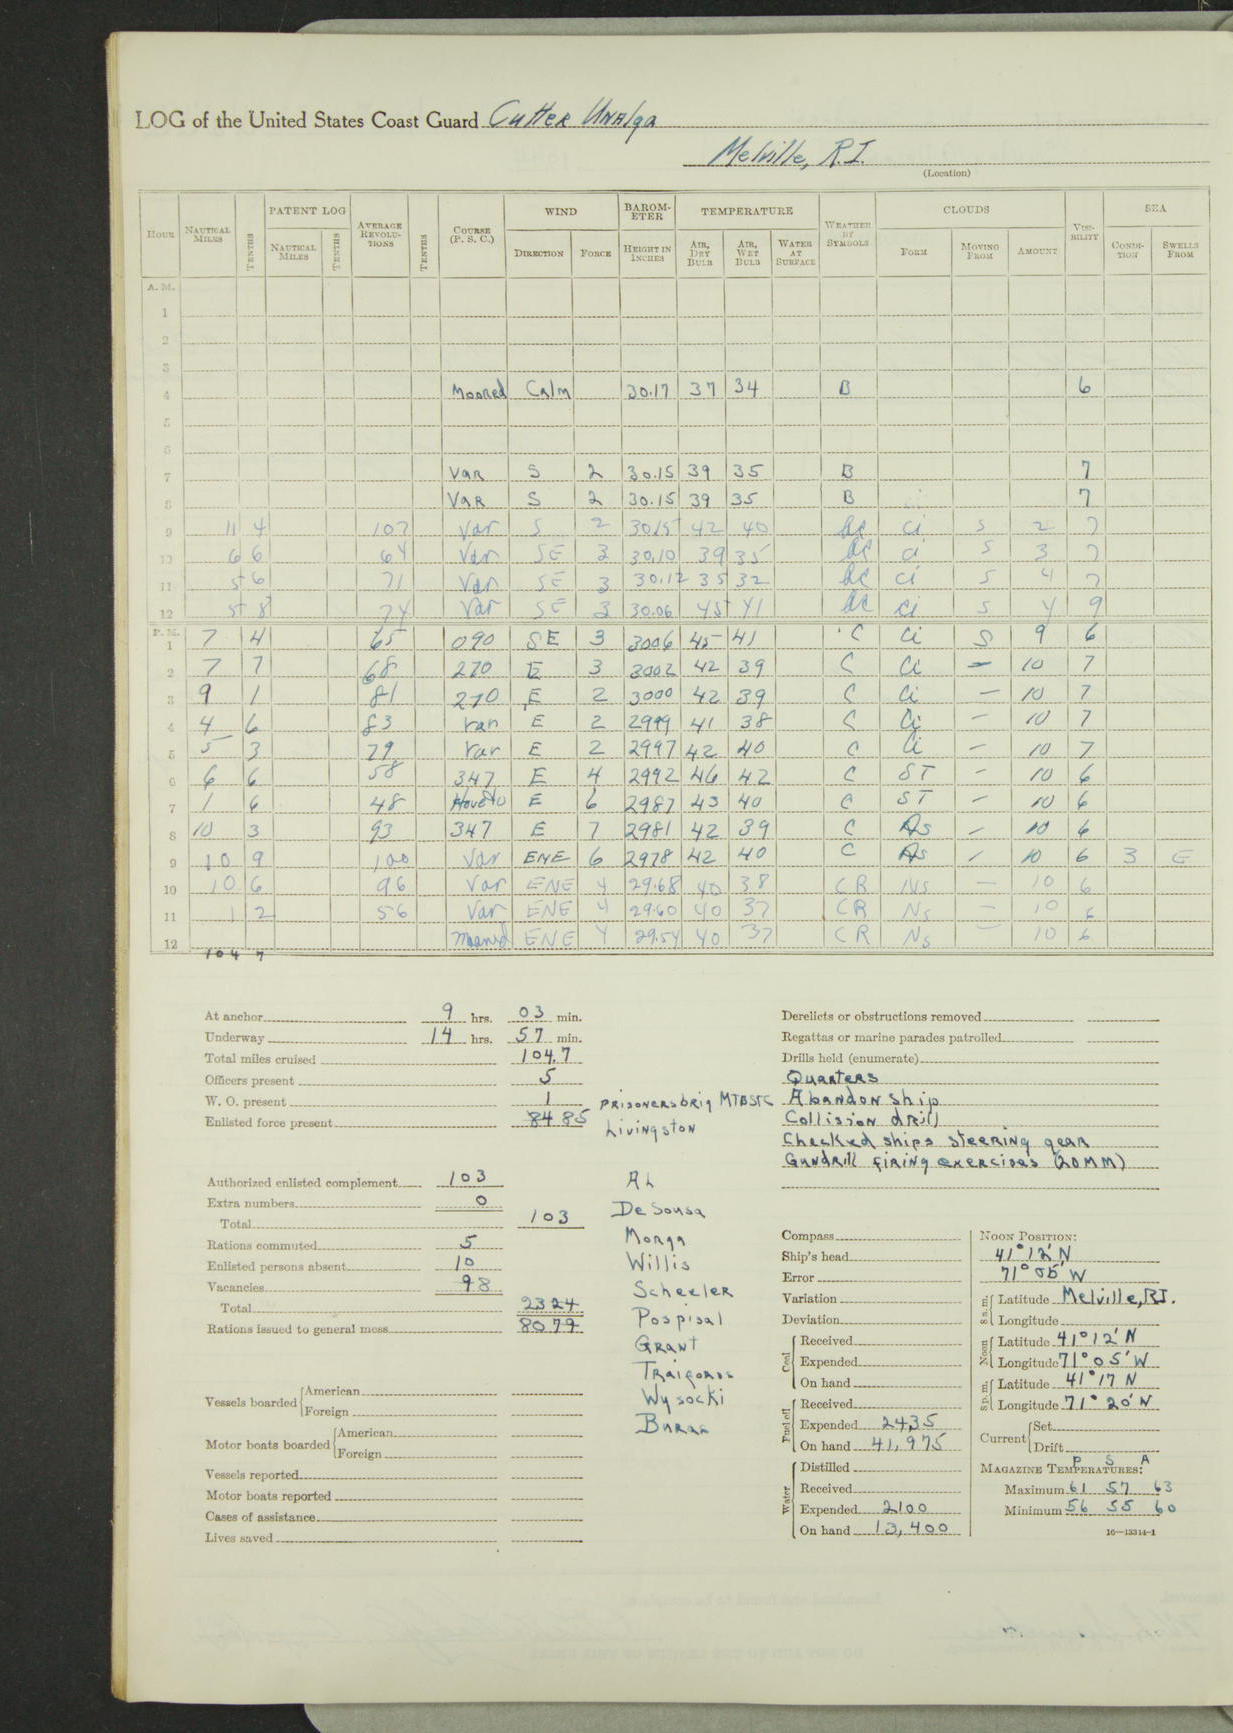 LOG of the United States Coast Guard Cutter Unalga
Melville, R.I.
(Location)
PATENT LOG WIND BAROMETER TEMPERATURE CLOUDS SEA
HOUR NAUTICAL MILES TENTHS NAUTICAL MILES TENTHS AVERAGE REVOLUTIONS TENTHS COURSE (P. S. C.) DIRECTION FORCE HEIGHT IN INCHES AIR, DRY BULB AIR, WET BULB WATER AT SURFACE WEATHER BY SYMBOLS FORM MOVING FROM AMOUNT VISIBILITY CONDITION SWELLS FROM
A. M.
1
2
3
4 Moored Calm 30.17 37 34 B 6
5
6
7 Var S 2 30.15 39 35 B 7
8 Var S 2 30.15 39 35 B 7
9 11 4 107 Var S 2 3015 42 40 bc Ci S 2 7
10 6 6 64 Var SE 3 30.10 39 35 bc Ci S 3 7
11 5 6 71 Var SE 3 30.12 35 32 bc Ci S 4 7
12 5 8 74 Var SE 3 30.06 45 41 bc Ci S 4 9
P. M.
1 7 4 65 090 SE 3 3006 45 41 C Ci S 9 6
2 7 7 68 270 E 3 3002 42 39 C Ci — 10 7
3 9 1 81 270 E 2 3000 42 39 C Ci — 10 7
4 4 6 83 Var E 2 2999 41 38 C Ci — 10 7
5 5 3 79 Var E 2 2997 42 40 C Ci — 10 7
6 6 6 58 347 E 4 2992 46 42 C ST — 10 6
7 1 6 48 Hove to E 6 2987 43 40 C ST — 10 6
8 10 3 93 347 E 7 2981 42 39 C As — 10 6
9 10 9 100 Var ENE 6 2978 42 40 C As — 10 6 3 E
10 10 6 96 Var ENE 4 29.68 40 38 CR Ns — 10 6
11 1 2 56 Var ENE 4 29.60 40 37 CR Ns — 10 6
12 Moored ENE 4 29.54 40 37 CR Ns — 10 6
104 7
At anchor 9 hrs. 03 min.
Underway 14 hrs. 57 min.
Total miles cruised 104.7
Officers present 5
W. O. present 1
Enlisted force present 84 85
Authorized enlisted complement 103
Extra numbers 0
Total 103
Rations commuted 5
Enlisted persons absent 10
Vacancies 98
Total 2324
Rations issued to general mess 8079
Vessels boarded American
Foreign
Motor boats boarded American
Foreign
Vessels reported
Motor boats reported
Cases of assistance
Lives saved
Prisoners brig MTBSTC
Livingston
AL
De Sousa
Willis
Scheeler
Pospisal
Grant
Wysocki
Derelicts or obstructions removed
Regattas or marine parades patrolled
Drills held (enumerate)
Quarters
Abandon ship
Collision drill
Checked ships steering gear
Gundrill firing exercises (20MM)
Compass
Ship's head
Error
Variation
Deviation
Coal Received
Expended
On hand
Fuel oil Received
Expended 2435
On hand 41,975
Water Distilled
Received
Expended 2100
On hand 13,400
NOON POSITION:
41° 12' N
71° 05' W
8 a. m. Latitude Melville, R.I.
Longitude
Noon Latitude 41° 12' N
Longitude 71° 05' W
8 p. m. Latitude 41° 17 N
Longitude 71° 20' W
Current Set
Drift
P S A
MAGAZINE TEMPERATURES:
Maximum 61 57 63
Minimum 56 55 60
16—13314-1